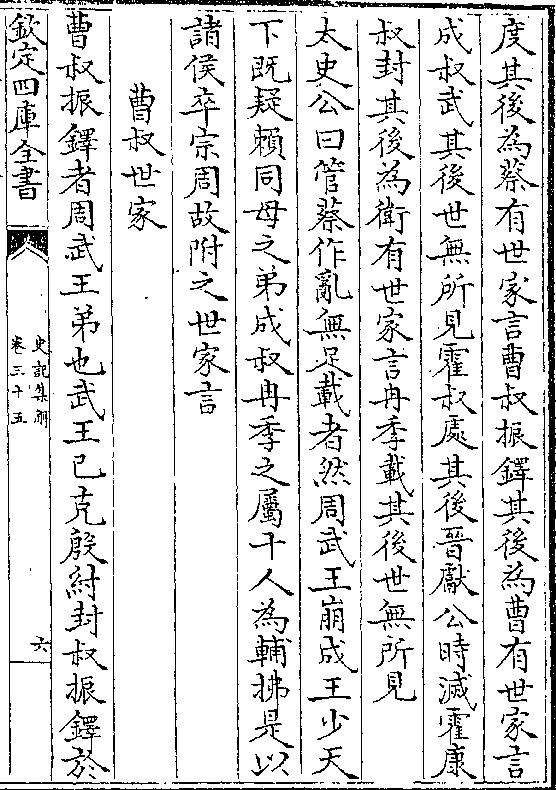 度其後為蔡有世家言曹叔振鐸其後為曹有世家言
成叔武其後世無所見霍叔處其後晉獻公時滅霍康
叔封其後為衛有世家言冉季載其後世無所見
太史公曰管蔡作亂無足載者然周武王崩成王少天
下既疑頼同母之弟成叔冉季之屬十人為輔拂是以
諸侯卒宗周故附之世家言
曹叔世家
曹叔振鐸者周武王弟也武王已克殷紂封叔振鐸於
欽定四庫全書
史記集解
卷三十五
六